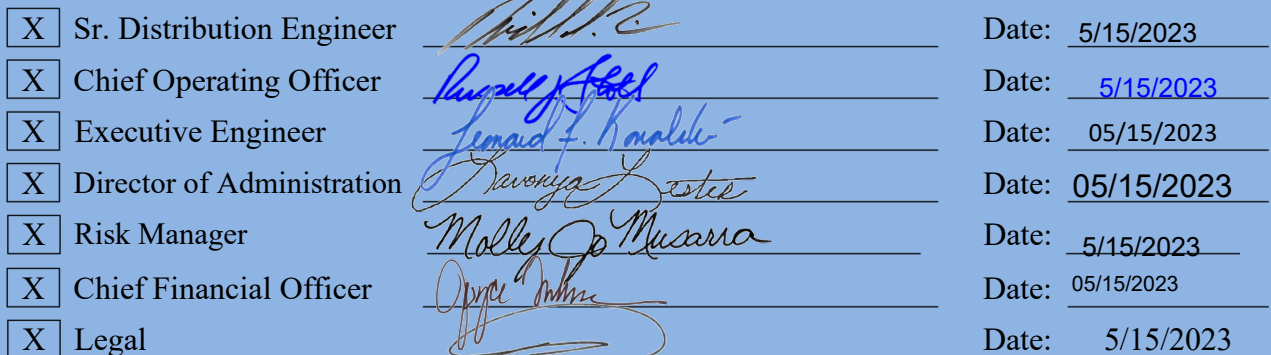 X Sr. Distribution Engineer Date: 5/15/2023
X Chief Operating Officer Russell J Date: 5/15/2023
X Executive Engineer Leonard F. Date: 05/15/2023
X Director of Administration Lavonya Lester Date: 05/15/2023
X Risk Manager Molly Jo Musarra Date: 5/15/2023
X Chief Financial Officer Date: 05/15/2023
X Legal Date: 5/15/2023